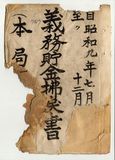 自昭和九年七月
至〃　十二月
義務貯金拂戻書
本局